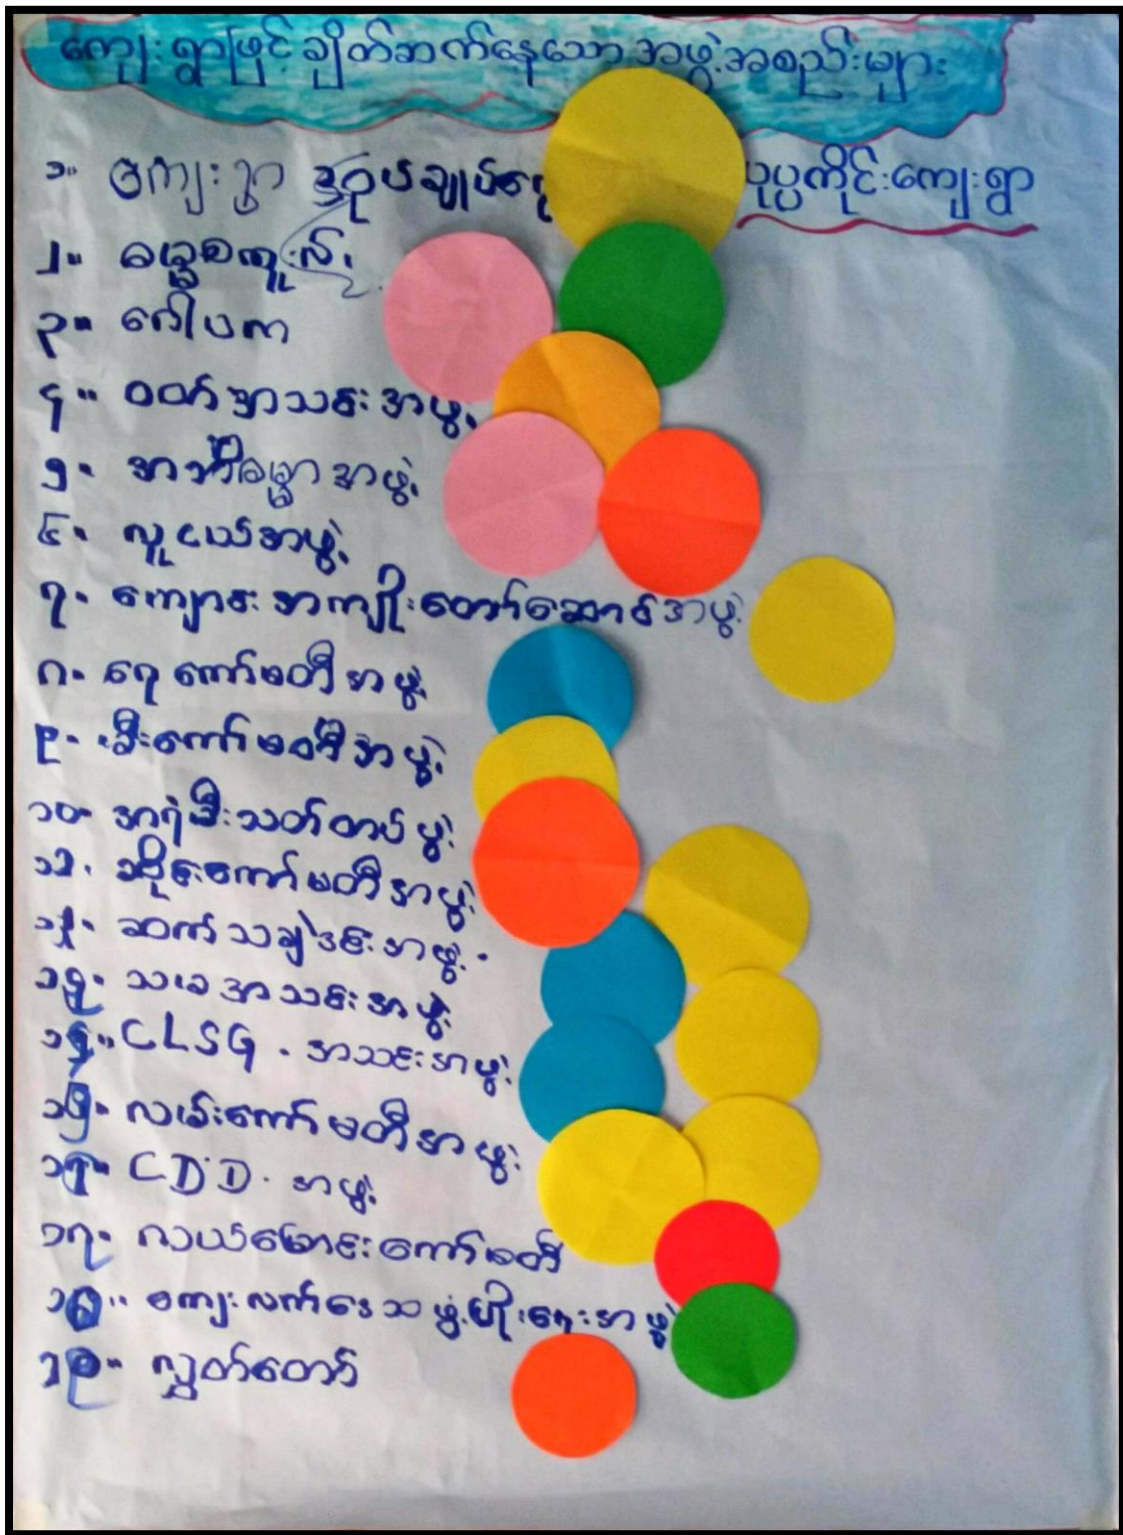 ကျေးရွာဖြင့် ချိတ်ဆက်နေသော အဖွဲ့အစည်းများ
၁။ ကျေးရွာ အုပ်ချုပ်ရေ ပုပ္ပကိုင်းကျေးရွာ
၂။ ဓမ္မစကူးလ်
၃။ ဂေါပက
၄။ ဝတ်အသင်းအဖွဲ့
၅။ အဘိဓမ္မာအဖွဲ့
၆။ လူငယ်အဖွဲ့
၇။ ကျောင်းအကျိုးတော်ဆောင်အဖွဲ့
၈။ ရေကော်မတီအဖွဲ့
၉။ မီးကော်မတီအဖွဲ့
၁၀။ အရံမီးသတ်တပ်ဖွဲ့
၁၁။ ဆိုင်းကော်မတီအဖွဲ့
၁၂။ ဆက်သချဲဒင်းအဖွဲ့
၁၃။ သာအသင်းအဖွဲ့
၁၄။ CLSG အသင်းအဖွဲ့
၁၅။ လမ်းကော်မတီအဖွဲ့
၁၆။ CDD အဖွဲ့
၁၇။ လယ်မြောင်းကော်မတီ
၁၈။ ကျေးလက်ဒေသဖွံ့ဖြိုးရေးအဖွဲ့
၁၉။ လွှတ်တော်